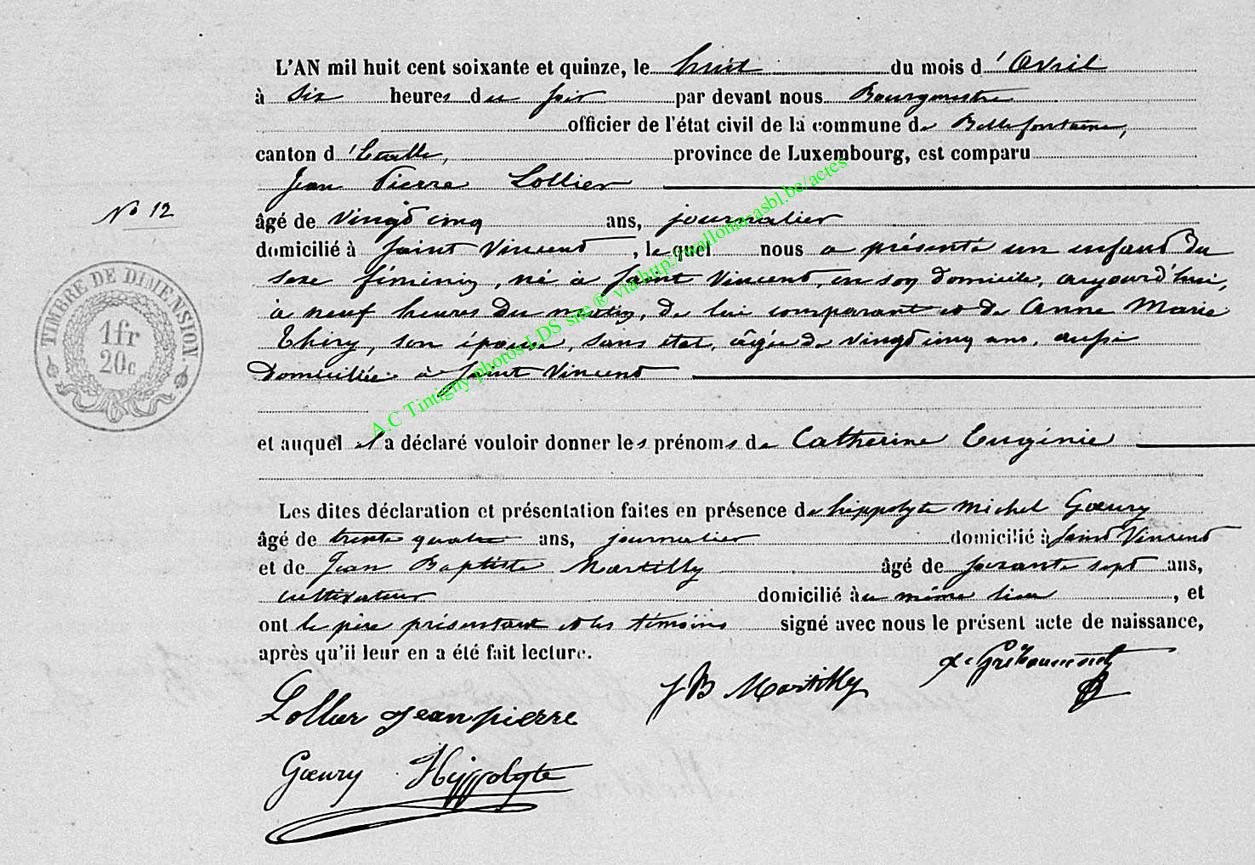 L'AN mil huit cent soixante et quinze, le huit du mois d'Avril
à six heures du soir par devant nous Bourgmestre
officier de l'état civil de la commune de Bellefontaine,
canton d'Etalle, province de Luxembourg, est comparu
Jean Pierre Lollier
No 12
âgé de vingt cinq ans, journalier
domicilié à Saint Vincent, lequel nous a présenté un enfant du
sexe féminin, né à Saint Vincent, en son domicile, aujourd'hui,
à neuf heures du matin, de lui comparant et de Anne Marie
Thiry, son épouse, sans état, âgée de vingt cinq ans, aussi
domiciliée à Saint Vincent
TIMBRE DE DIMENSION
1fr
20c
A.C Tintigny photos LDS site ® via http://wallonia-asbl.be/actes
et auquel il a déclaré vouloir donner les prénoms de Catherine Eugénie
Les dites déclaration et présentation faites en présence de hippolyte Michel Gœury
âgé de trente quatre ans, journalier domicilié à Saint Vincent
et de Jean Baptiste Martilly âgé de soixante sept ans,
cultivateur domicilié au même lieu, et
ont le père présentant et les témoins signé avec nous le présent acte de naissance,
après qu'il leur en a été fait lecture.
J B Martilly
Lollier Jean pierre
Gœury Hyppolyte